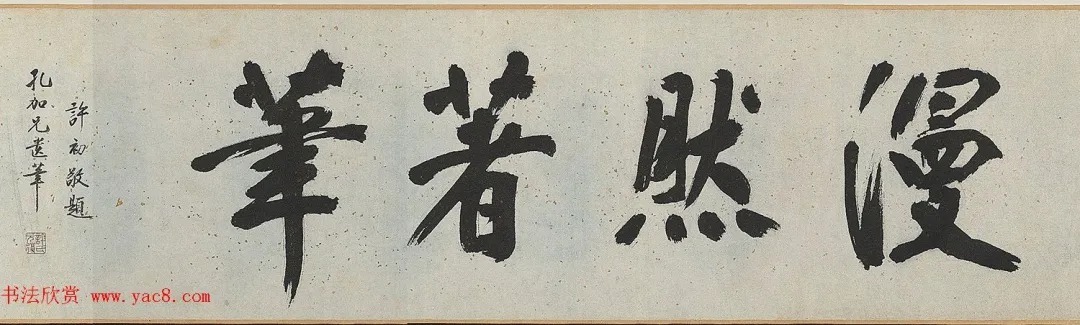 漫然著筆
孔加兄遺筆
許初敬題
书法欣赏 www.yac8.com